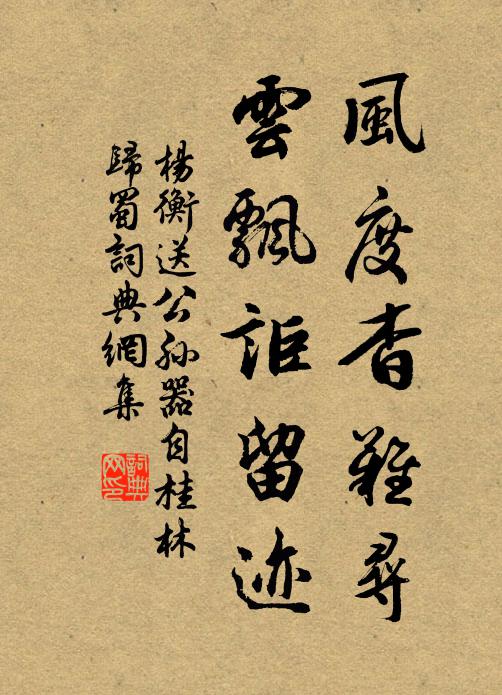 風度杳難尋
雲飄詎留迹
楊衡送公孫器自桂林
歸蜀詞典網集
詞典
网印